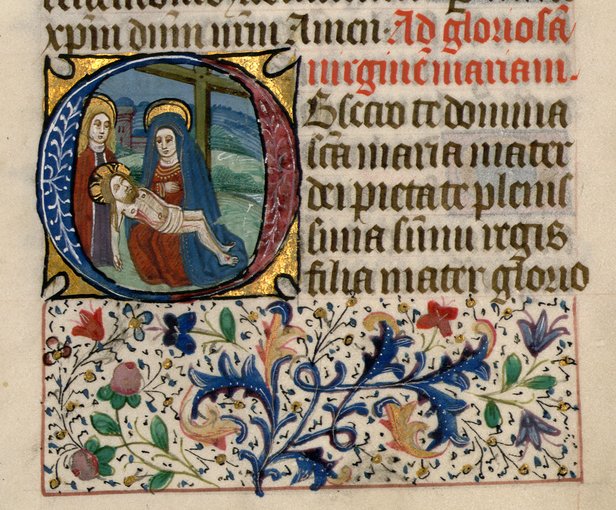 xp̄m dn̄m nr̄m Amen· Ad gloriosā
uirginē mariam·
Obsecro te domina
sc̄a maria mater
dei pietate plenis
sima sūmi regis
filia mater glorio